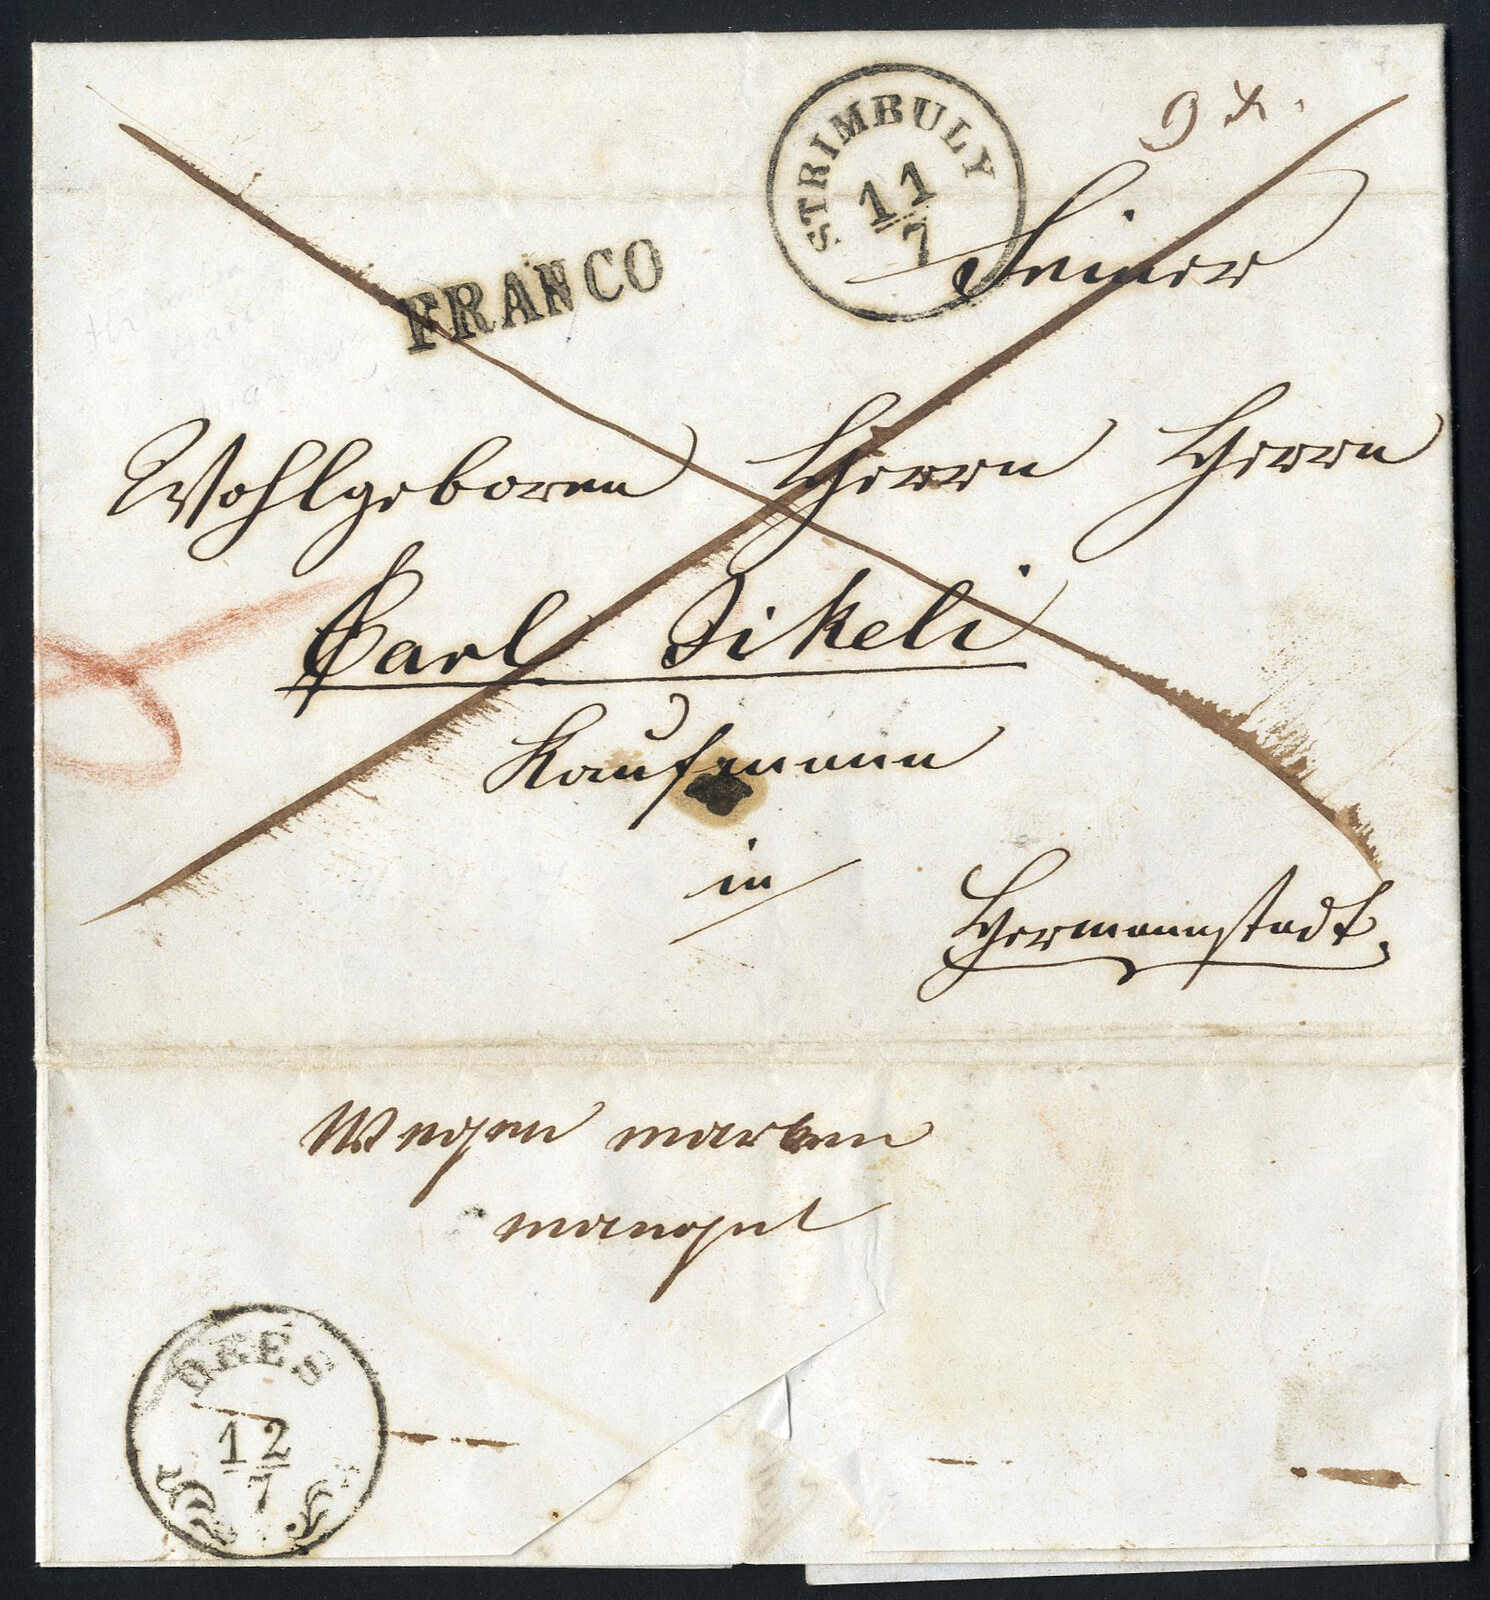 9 x.
STRIMBULY
11
7
FRANCO
Seiner
Wohlgeboren Herrn Herrn
Carl Sikeli
Kaufmann
in
Hermannstadt.
Wegen marken
mangel
DEES
12
7